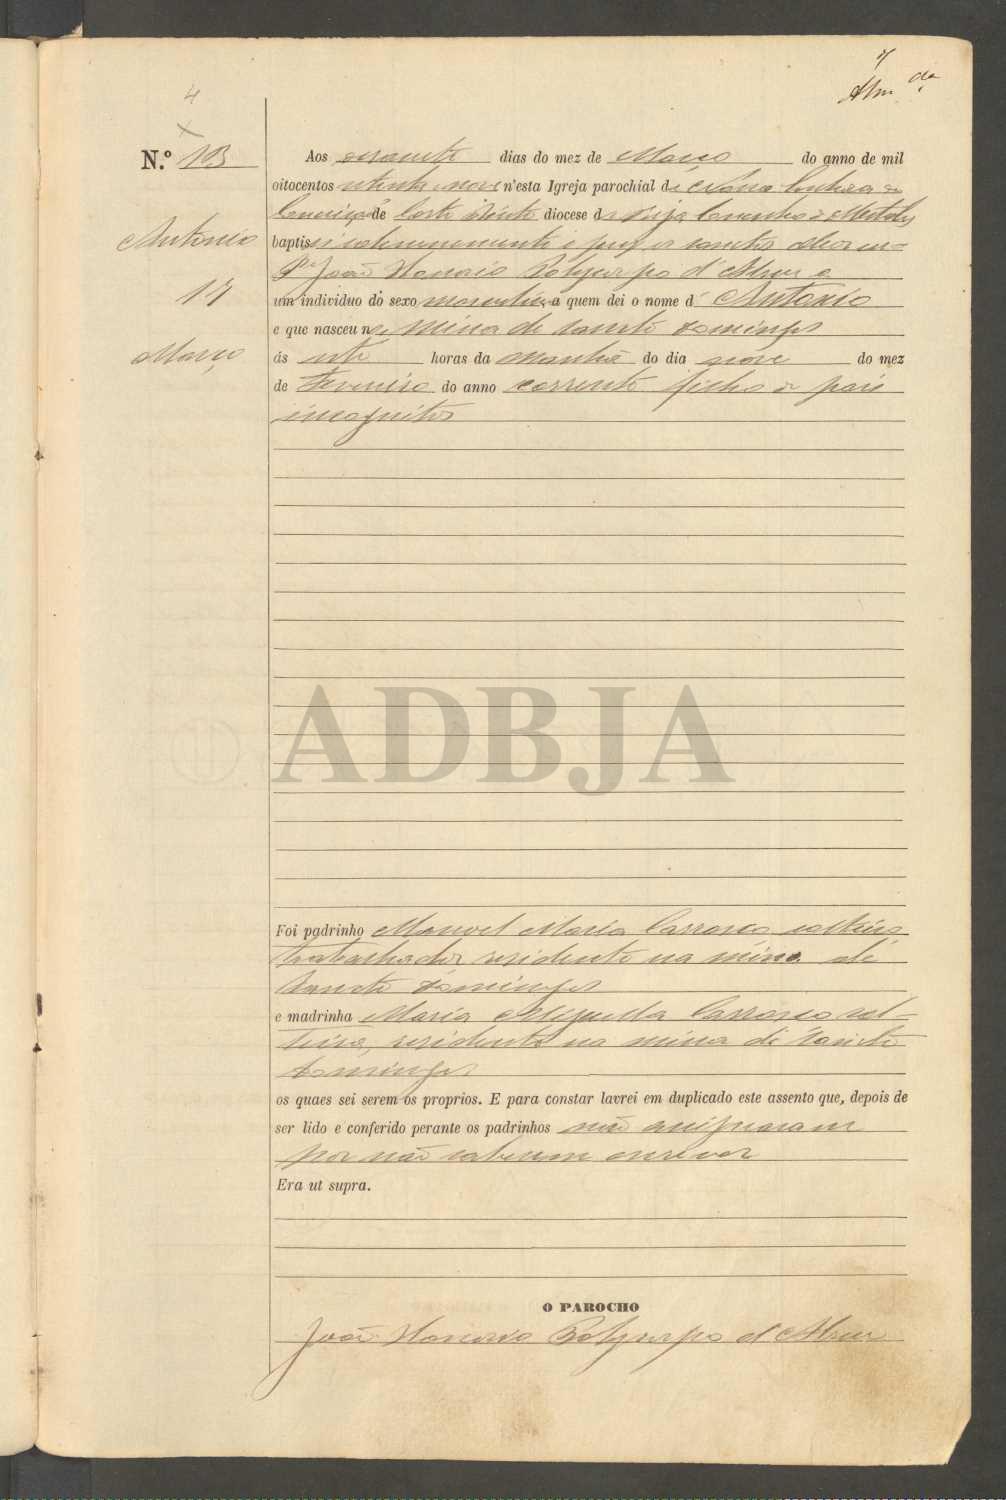 4
7
Alm da
N.º 13
Aos dias do mez de Março do anno de mil
oitocentos oitenta e nove n'esta Igreja parochial de Nossa Senhora da
Conceição de Corte do Pinto diocese de Beja Concelho de Mertola
Antonio
baptisei solemnemente e puz os santos oleos eu
Pe João Honorio Polycarpo d'Abreu a
17
um individuo do sexo masculino a quem dei o nome de Antonio
e que nasceu na Mina de Santo Domingos
Março
ás sete horas da manhã do dia nove do mez
de Fevereiro do anno corrente filho de pais
incognitos
ADBJA
Foi padrinho Manoel Maria Carrasco solteiro
trabalhador residente na mina de
Santo Domingos
e madrinha Maria Carrasco sol-
teira, residente na mina de Santo
Domingos
os quaes sei serem os proprios. E para constar lavrei em duplicado este assento que, depois de
ser lido e conferido perante os padrinhos não assignaram
por não saberem escrever
Era ut supra.
O PAROCHO
João Honorio Polycarpo d'Abreu